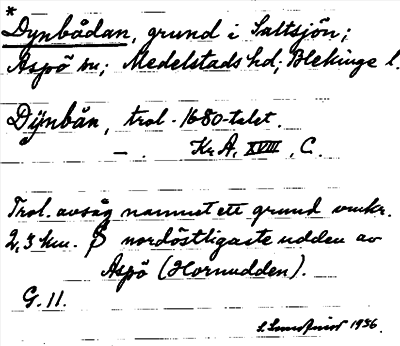 *
Dynbådan, grund i Saltsjön;
Aspö sn; Medelstads hd; Blekinge l.
Dÿnbån, trol. 1680-talet.
— . Kr.A, XVIII, C.
Trol. avsåg namnet ett grund omkr.
2,3 km. S nordöstligaste udden av
Aspö (Hornudden).
G. 11.
1936.